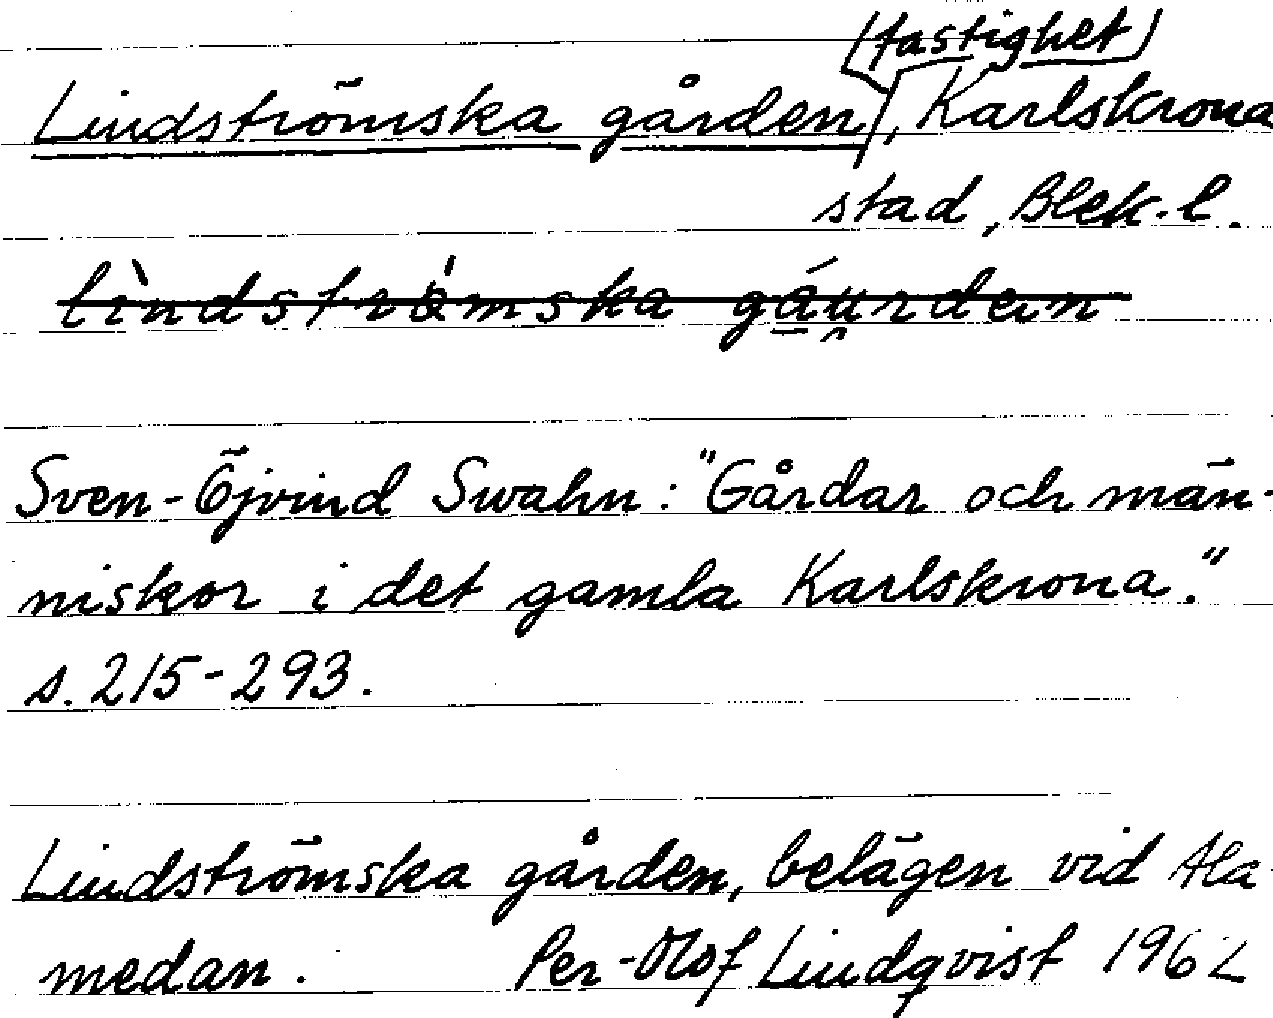 (fastighet)
Lindströmska gården, Karlskrona
stad, Blek. l.
Sven-Öjvind Swahn: "Gårdar och män-
niskor i det gamla Karlskrona."
s. 215-293.
Lindströmska gården, belägen vid Ala-
medan. Per-Olof Lindqvist 1962